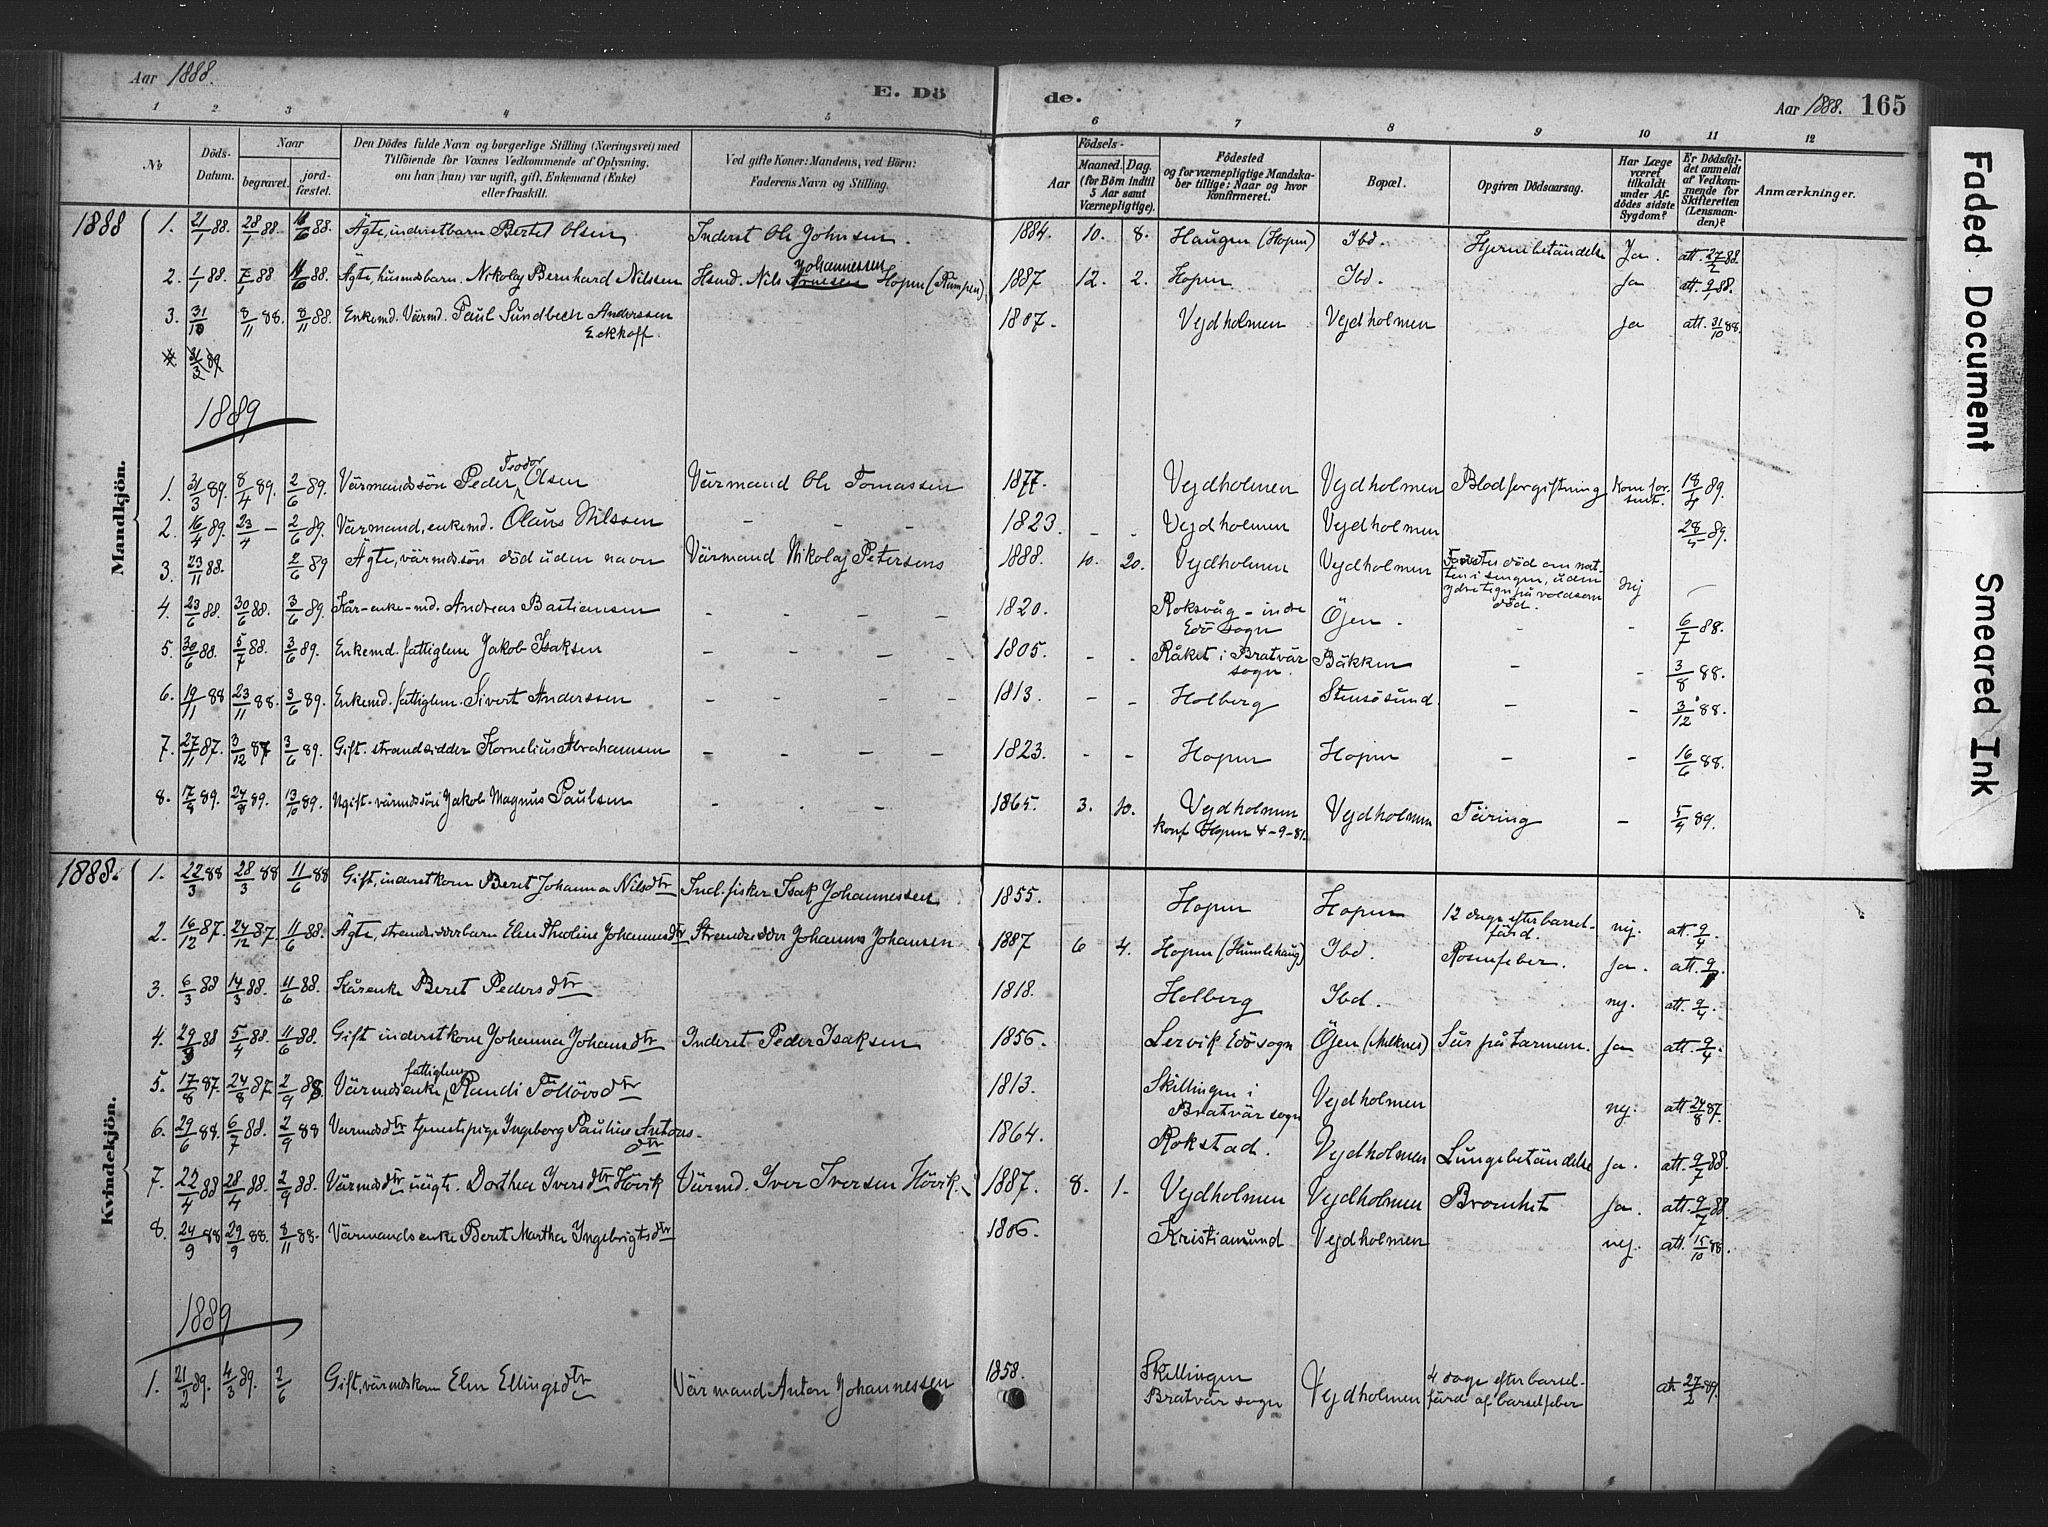 Aar 1888.
E. Döde.
Aar 1888. 165
1 2 3 4 5 6 7 8 9 10 11 12
No
Döds-Datum.
Naar
begravet.
jordfæstet.
Den Dödes fulde Navn og borgerlige Stilling (Næringsvei) med
Tilföiende for Voxnes Vedkommende af Oplysning,
om han (hun) var ugift, gift, Enkemand (Enke)
eller fraskilt.
Ved gifte Koner: Mandens, ved Börn:
Faderens Navn og Stilling.
Födsels-
Aar
Maaned. Dag.
(for Börn indtil
5 Aar samt
Værnepligtige).
Födested
og for værnepligtige Mandskaber tillige: Naar og hvor
konfirmeret.
Bopæl.
Opgiven Dödsaarsag.
Har Læge
været
tilkaldt
under Afdödes sidste
Sygdom?
Er Dödsfaldet anmeldt
af Vedkommende for
Skifteretten
(Lensmanden)?
Anmærkninger.
Mandkjön.
1888
1. 21/1 88. 28/1 88. 11/6 88. Ägte, inderstbarn Bertel Olsen Inderst Ole Johnsen. 1884. 10. 8. Haugen (Hopen) Ibd. Hjernebetändelse Ja. att. 27/2 88.
2. 1/1 88. 7/1 88 11/6 88. Ägte, husmdsbarn, Nikolay Bernhard Nilssen Hsmd. Nils Johannessen Hopen (Rumpen) 1887 12. 2. Hopen Ibd. Ja att. 9/1 88.
3. 31/10 8/11 88. 8/11 88. Enkemd. Värmd. Paul Sundbech Anderssen
Eckhoff. 1807. Vejdholmen Vejdholmen Ja att. 31/10 88.
31/3 89
1889
1. 31/3 89. 8/4 89. 2/6 89. Värmandssön Peder Teodor Olsen Värmand Ole Tomassen 1877. - - Vejdholmen Vejdholmen Blodforgiftning kom forsent. 89.
2. 16/4 89. 23/4 - 2/6 89. Värmand, enkemd. Olaus Nilssen - - - 1823. - - Vejdholmen Vejdholmen 89.
3. 23/11 88. 2/6 89 Ägte, värmdssön död uden navn Värmand Nikolaj Petersens 1888. 10. 20. Vejdholmen Vejdholmen död om natten i sengen, uden
ydre tegn på voldsom
död. nej -
4. 23/6 88. 30/6 88. 3/6 89. Kår-enke-md. Andreas Bastiansen - - - - 1820. - - Roksvåg - indre
Edö sogn Öjen. - - 6/7 88.
5. 30/6 88. 5/7 88. 3/6 89. Enkemd. fattiglem Jakob Isaksen - - - - 1805. - - Råket i Bratvär
sogn. Bäkken - - 3/8 88.
6. 19/11 88 23/11 88. 3/6 89. Enkemd. fattiglem. Sivert Anderssen - - - - 1813. - - Holberg Stensösund. - - 3/12 88.
7. 27/11 87. 3/12 87 3/6 89. Gift. strandsidder Kornelius Abrahamsen - - - - 1823. - - Hopen Hopen - - 16/6 88.
8. 89. 89. 13/10 89. Ugift-värmdssön Jakob Magnus Paulsen - - - 1865. 3. 10. Vejdholmen
konf Hopen 4-9-81. Vejdholmen Täring - 89.
Kvindekjön.
1888.
1. 22/3 88 28/3 88 11/6 88 Gift, inderstkone Beret Johanna Nilsdtr Ind. fisker Isak Johannessen 1855. Hopen Hopen 12 dage efter barselfärd. nej. att. 9/4.
2. 16/12 87. 24/12 87. 11/6 88. Ägte, strandsidderbarn Elen Theoline Johannesdtr Strandsidder Johannes Johansen. 1887 6 4. Hopen (Humlehaug) Ibd. Rosenfeber. Ja. att. 9/1.
3. 6/3 88 14/3 88. 11/6 88. Kårenke Beret Pedersdtr 1818. Holberg Ibd. nej. att. 9/4
4. 29/3 88 5/4 88. 11/6 88. Gift inderstkone Johanna Johansdtr Inderst Peder Isaksen 1856. Lervik Edö sogn Öjen (Melknes) Sår på tarmene. Ja att. 9/4.
5. 17/8 87. 24/8 87. 2/9 88. Värmdsenke fattiglem Randi Tollövsdtr 1813. Skillingen i
Bratvär sogn Vejdholmen nej. att. 24/8 87.
6. 29/6 88. 6/7 88. 2/9 88 Värmdsdtr tjenestepige Ingeborg Pauline Antonsdtr 1864. Rokstad. Vejdholmen Lungebetändelse Ja. att. 9/7 88.
7. 22/4 88 28/4 88. 2/9 88. Värmdsdtr uägt. Dorthea Iversdtr Hövik Värmd. Iver Iversen Hövik. 1887. 8. 1. Vejdholmen Vejdholmen Bronkit Ja. att. 9/7 88.
8. 24/9 88 29/9 88. 8/11 88. Värmandsenke Berit Martha Ingebrigtsdtr 1806. Kristiansund Vejdholmen nej. att. 15/10 88.
1889
1. 21/2 89. 4/3 89. 2/6 Gift, värmdskone Elen Ellingsdtr Värmand Anton Johannessen 1858. Skillingen
Bratvär sogn Vejdholmen 4 dage efter barselfärd af barselfeber att. 27/2 89
Faded Document
Smeared Ink